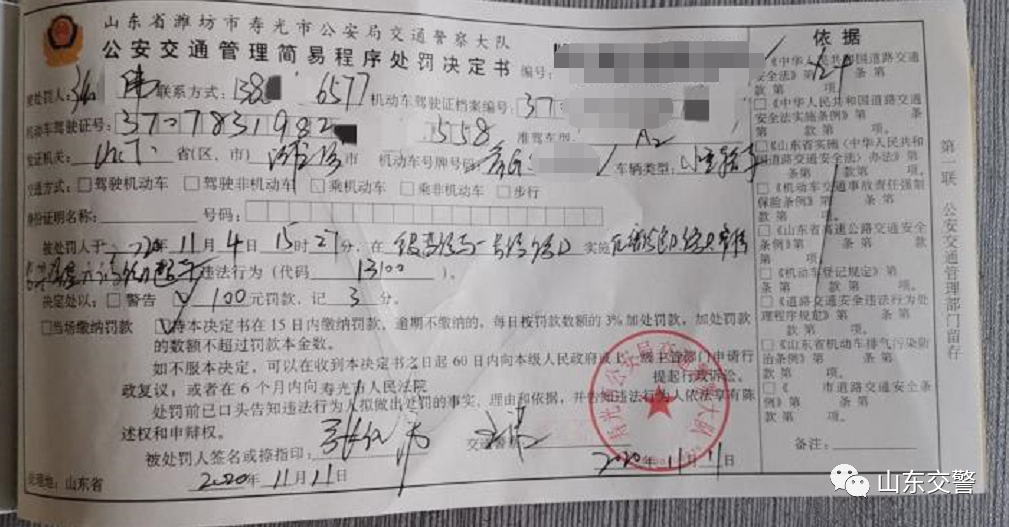 山东省潍坊市寿光市公安局交通警察大队
公安交通管理简易程序处罚决定书 编号:
被处罚人: 联系方式:138 6577 机动车驾驶证档案编号:37
机动车驾驶证号:3707831982 1558 准驾车型: A2
发证机关: 山东 省(区、市) 潍坊 市 机动车号牌号码: 车辆类型:小型轿车
交通方式:□驾驶机动车 □驾驶非机动车 □乘机动车 □乘非机动车 □步行
身份证明名称: 号码:
被处罚人于 2020年11月4日15时27分,在 实施
违法行为(代码 13100 )。
决定处以:□警告 100元罚款,记 3 分。
□当场缴纳罚款 持本决定书在15日内缴纳罚款,逾期不缴纳的,每日按罚款数额的3%加处罚款,加处罚款
的数额不超过罚款本金数。
如不服本决定,可以在收到本决定书之日起60日内向本级人民政府或上一级主管部门申请行
政复议,或者在6个月内向寿光市人民法院 提起行政诉讼。
处罚前已口头告知违法行为人拟做出处罚的事实、理由和依据,并告知违法行为人依法享有陈
述权和申辩权。
被处罚人签名或捺指印: 交通警察:
处理地:山东省 2020年11月11日 2020年11月11日
依据
□《中华人民共和国道路交通
安全法》第 条 第
款 第 项。
□《中华人民共和国道路交通
安全法实施条例》第 条
第 款 第 项。
□《山东省实施〈中华人民共和
国道路交通安全法〉办法》第
条 第 款第 项。
□《机动车交通事故责任强制
保险条例》第 条 第
款 第 项。
□《山东省高速公路交通安全
条例》第 条 第 款
第 项。
□《机动车登记规定》第
条 第 款 第 项。
□《道路交通安全违法行为处
理程序规定》第 条 第
款 第 项。
□《山东省机动车排气污染防
治条例》第 条 第
款 第 项。
□《 市道路交通安全条
例》第 条 第
款 第 项。
备注:
第一联 公安交通管理部门留存
山东交警